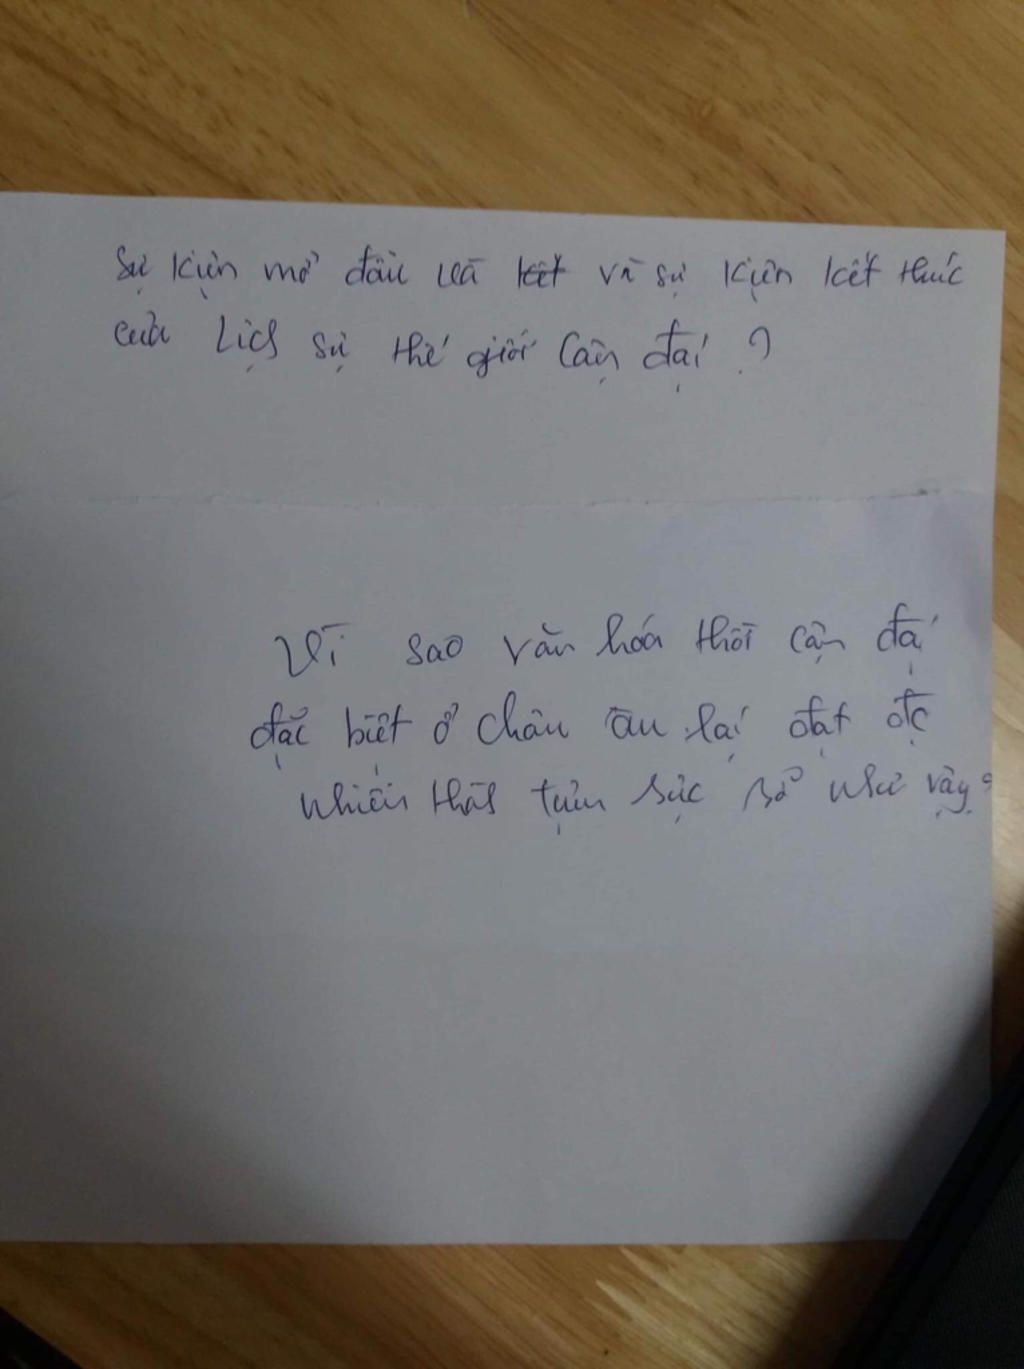 Sự kiện mở đầu và kết và sự kiện kết thúc
của Lịch sự thế giới Cận đại ?
Vì sao văn hóa thời cận đại
đặc biệt ở Châu Âu lại đạt đc
nhiến thành tựu rực rỡ như vậy?